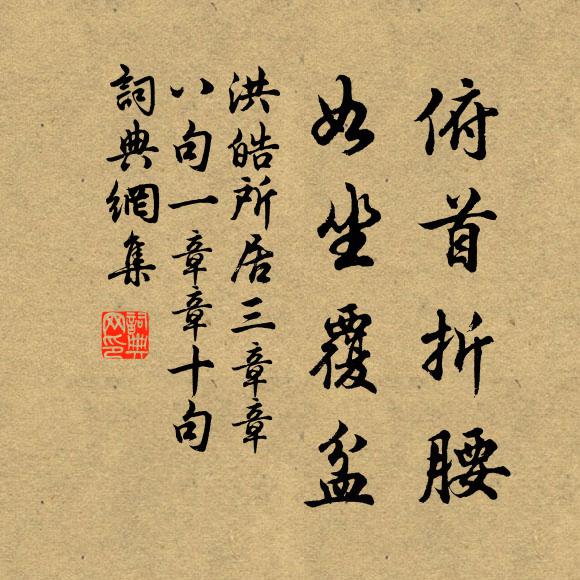 俯首折腰
如坐覆盆
洪皓所居三章章
八句一章章十句
詞典網集
詞典
网印